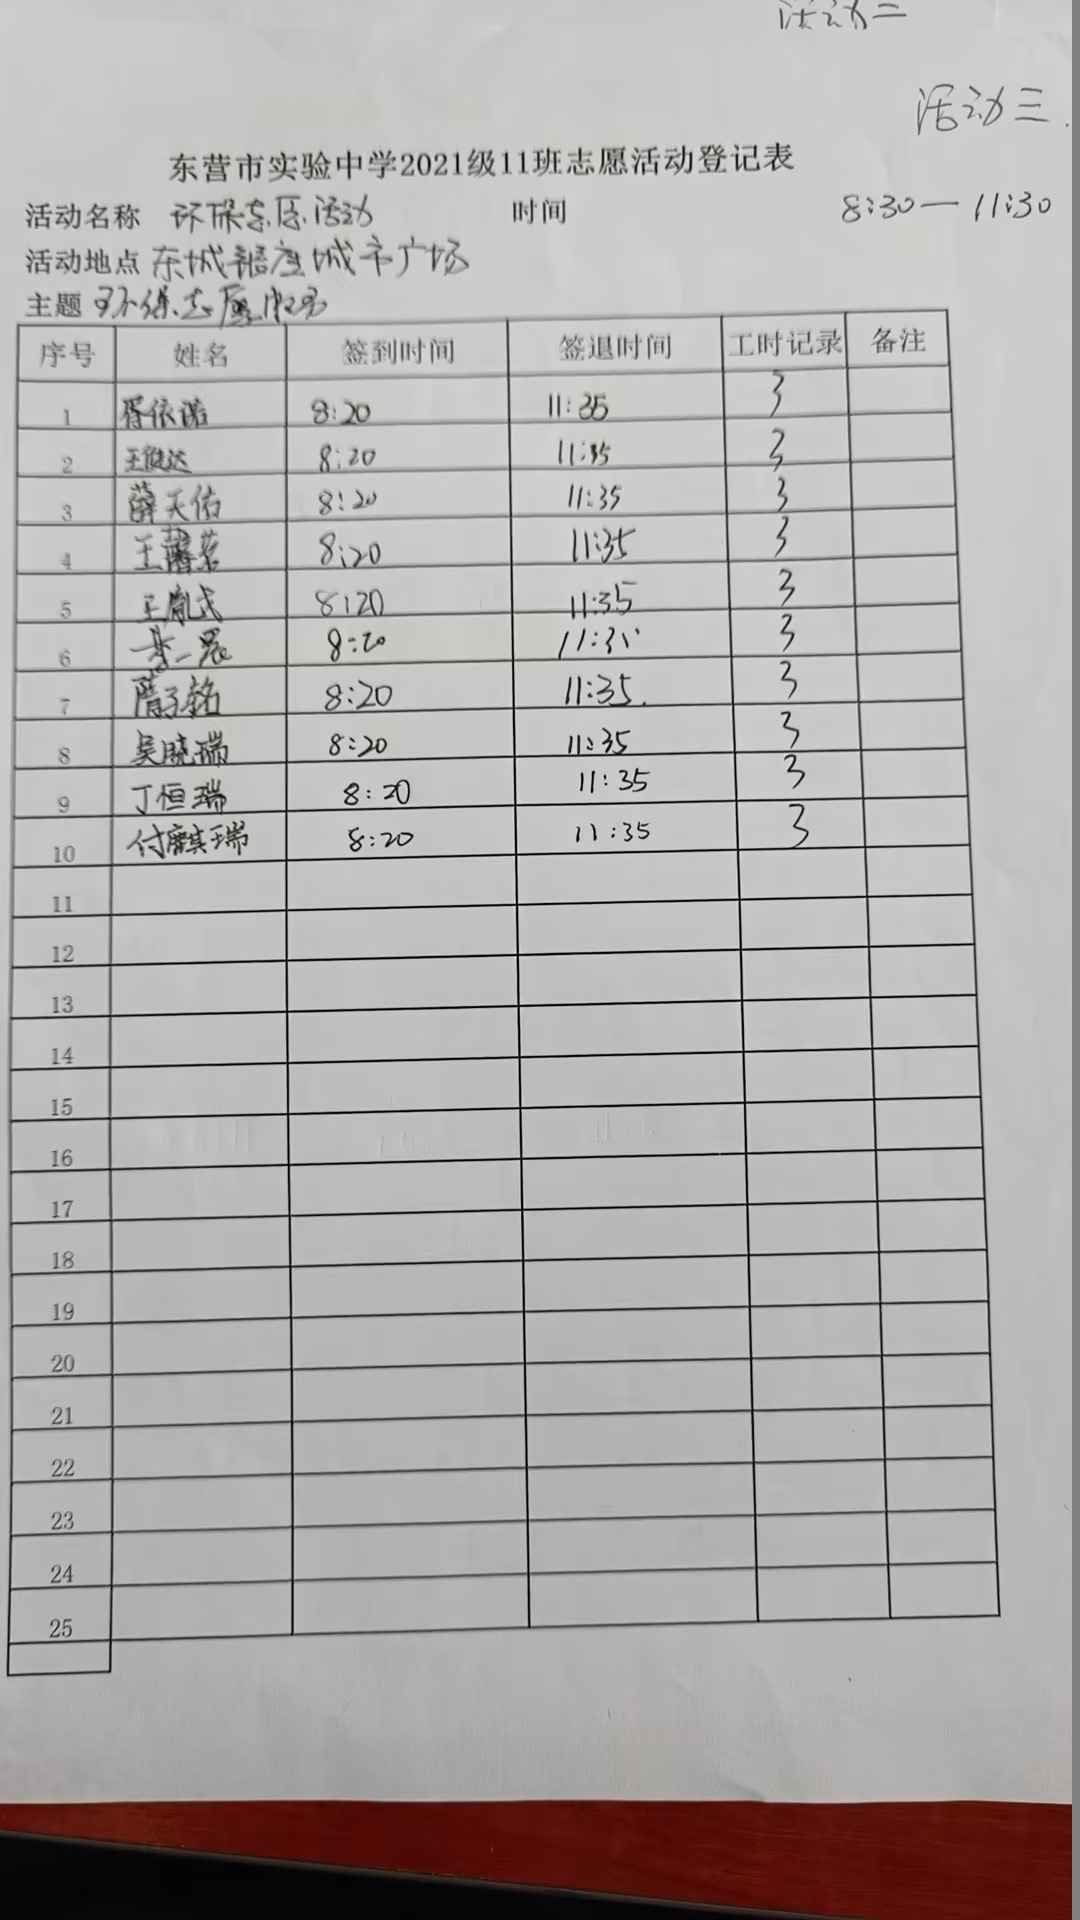 活动二
活动三
东营市实验中学2021级11班志愿活动登记表
活动名称 环保志愿活动 时间 8:30—11:30
活动地点 东城 城市广场
主题 环保志愿服务
序号 姓名 签到时间 签退时间 工时记录 备注
1 胥依诺 8:20 11:35 3
2 王俊达 8:20 11:35 3
3 薛天佑 8:20 11:35 3
4 王馨茗 8:20 11:35 3
5 王胤弍 8:20 11:35 3
6 李一宸 8:20 11:35 3
7 隋子铭 8:20 11:35 3
8 吴晓瑞 8:20 11:35 3
9 丁恒瑞 8:20 11:35 3
10 付麒瑞 8:20 11:35 3
11
12
13
14
15
16
17
18
19
20
21
22
23
24
25